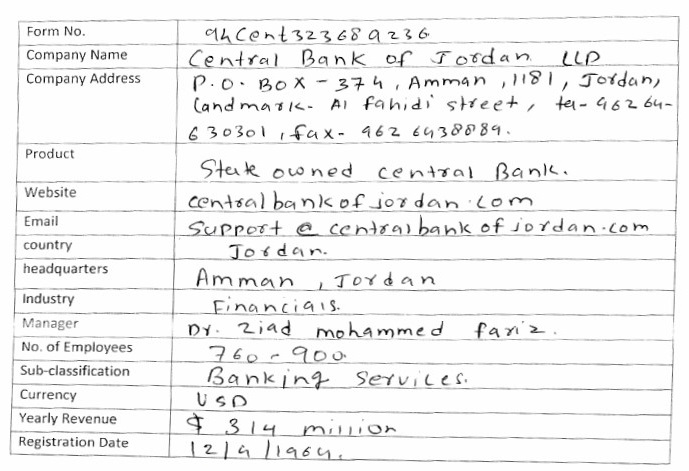 Form No. 9hCent323689236
Company Name Central Bank of Jordan LLP
Company Address P.O. BOX - 374, Amman, 1181, Jordan,
Landmark- Al fahidi street, tel- 962 64-
630301, fax- 962 6438889.
Product State owned central Bank.
Website centralbankofjordan.com
Email Support@centralbankofjordan.com
country Jordan.
headquarters Amman, Jordan
Industry Financials.
Manager Dr. Ziad mohammed fariz.
No. of Employees 760-900.
Sub-classification Banking Services.
Currency USD
Yearly Revenue $ 314 million
Registration Date 12/9/1964.